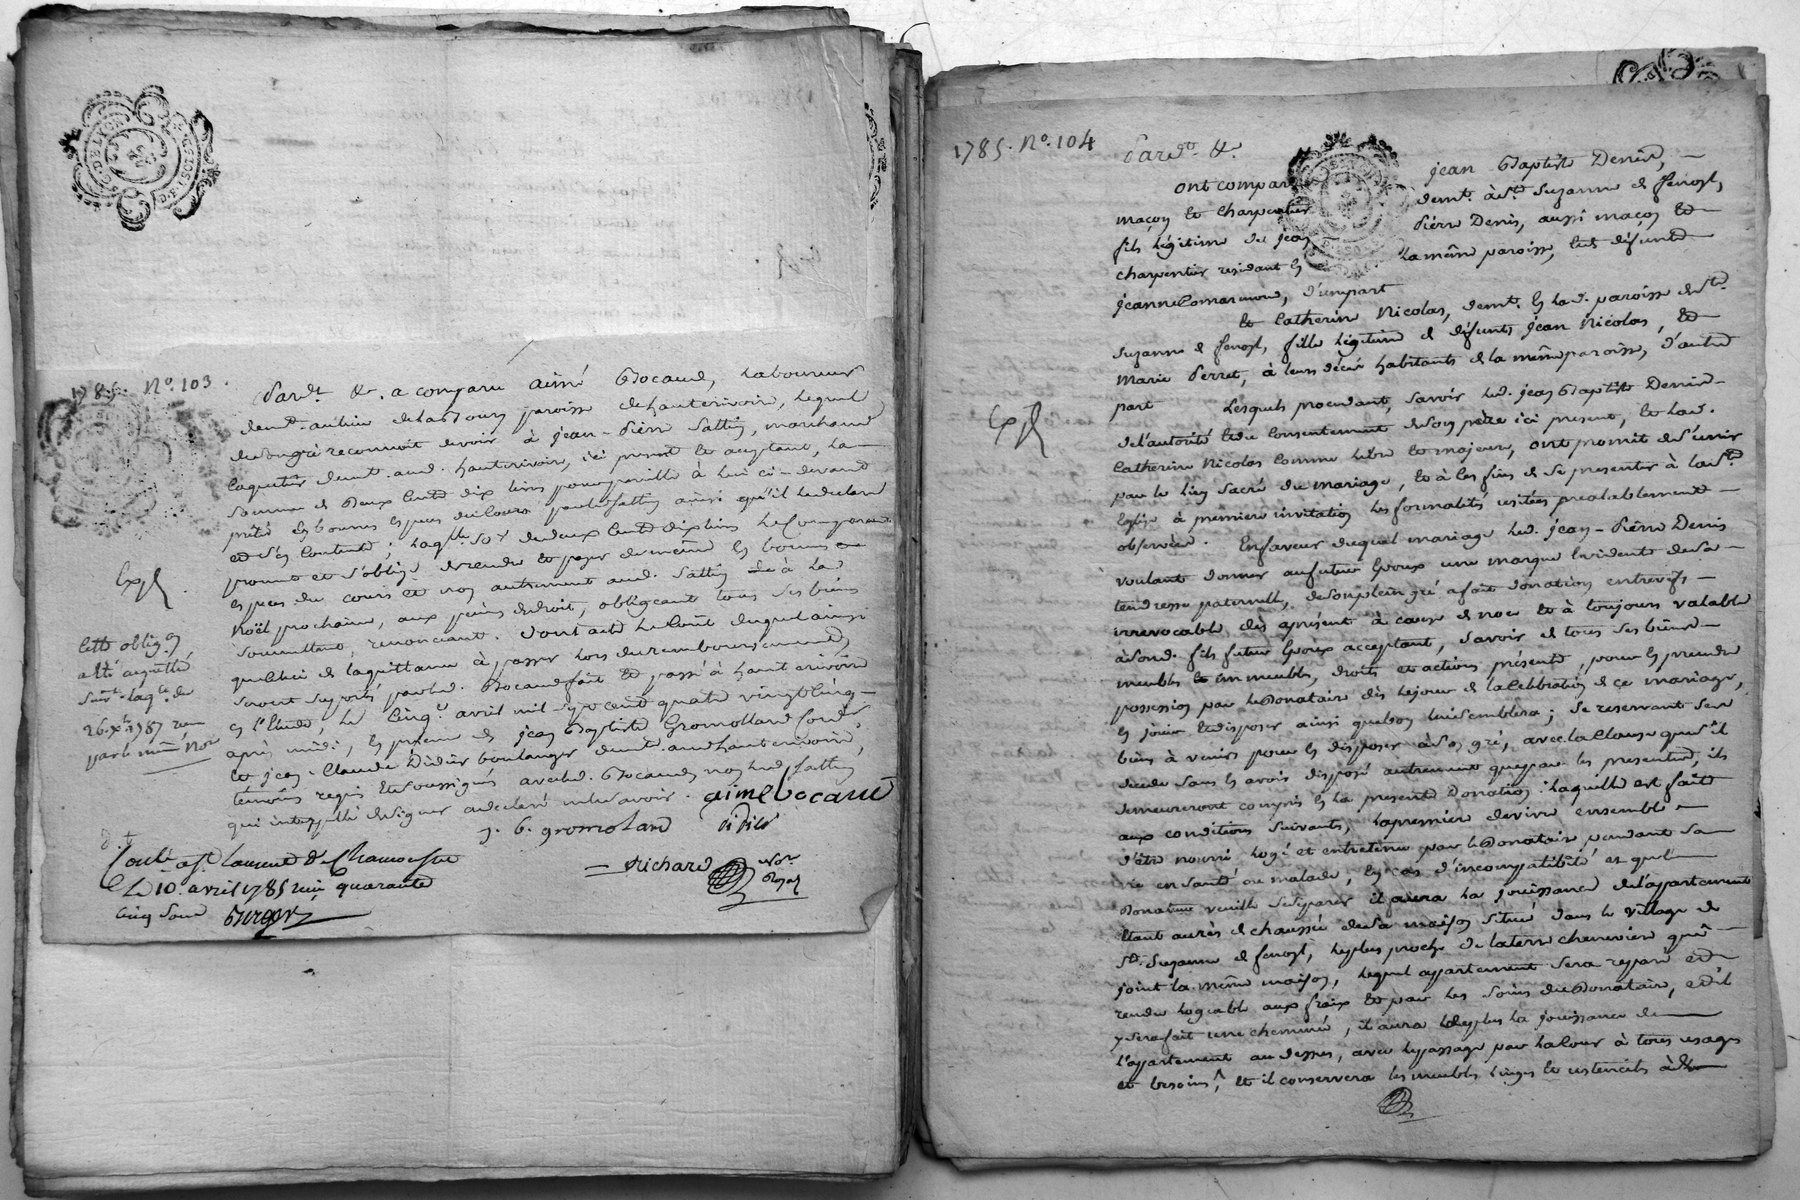 G. DE LYON
1785. No. 103.
Pardt. &. a comparu aimé Bocaud, Laboureur
demt. au lieu de paroisse dehauterivoire, Lequel
desongré reconnoit devoir à jean-Pièrre Sattin, marchand
demt. aud. hauterivoire, ici present et acceptant, La
Somme de Deux Cent dix Livres pour pareille à Lui ci-devant
prêté en bonnes especes du Cours par led Sattin ainsi qu'il Le declare
et s'en Contente; Laqlle. So.e de deux Cent dix Livres Le Comparant
promet et s'oblige de rendre et payer de même en bonnes
especes du cours et non autrement aud. Sattin à La
Noël prochaine, aux peines de droit, obligeant tous ses biens
Soumettant, renonciant. Dont acte Le Coût duquel ainsi
que Celui de la quittance à passer Lors du remboursement
Seront Suportés par led. Bocaud fait et passé à hauterivoire
en l'Etude, Le Cinq. avril mil sept cent quatre vingt Cinq
après midi, en presence de jean Baptiste Gromolard
et jean-Claude Didier boulanger demt. aud hauterivoire,
témoins requis et Soussignés avec led. Bocaud, non led Sattin
qui interpellé de Signer a declaré ne le savoir.
aime bocaud
j. b. gromolard
Didier
Richard
Nore.
Royal
Expé
Cette oblig.on
a été acquittée
suivt. acte du
26. Xbre 1787 reçu
par le même Nore
Contlé. a St. Laurent De Chamousset
Le 10. avril 1785 reçu quarante
Cinq Sous
Burger
1785. No. 104
Pardt. &.
ont comparu jean Baptiste Denis,
maçon et charpentier demt. à Ste. Suzanne de fenoyl,
fils légitime de jean Pièrre Denis, aussi maçon et
charpentier residant en La même paroisse, et de défunte
jeanne Comarmond, d'une part
et Catherine Nicolas, demt. en lad. paroisse de Ste.
Suzanne de fenoyl, fille Légitime de défunts jean Nicolas, et
Marie Perret, à leurs décès habitants de la même paroisse, d'autre
part Lesquels procedant, savoir led. jean Baptiste Denis
de l'autorité et du Consentement de son père ici present, et Lad.
Catherine Nicolas Comme Libre et majeure, ont promit de S'unir
par le Lien Sacré du mariage, et à Ces fins de se presenter à la Ste.
Eglise à première invitation Les formalités usitées préalablement
observées. En faveur duquel mariage led. jean-Pièrre Denis
voulant donner au futur Epoux une marque Evidente de sa
tendresse paternelle, de son plein gré a fait donation entrevifs
irrevocable dès aprésent à cause de noce et à toujours valable
à Sond. fils futur Epoux acceptant, savoir de tous ses biens
meubles et immeubles, droits et actions présents, pour en prendre
possession par le Donataire dès le jour de la Célébration de ce mariage,
en jouir et disposer ainsi que bon lui semblera; se reservant Ses
biens à venirs pour en disposer à Son gré, avec la Clause que s'il
decede sans en avoir disposé autrement que par Ces presentes, ils
demeureront compris en la presente Donation. Laquelle est faite
aux conditions suivantes, la première de vivre ensemble
d'être nourri logé et entretenu par le Donataire pendant sa
vie en santé ou maladie, en cas d'incompatibilité et que le
Donateur veuille se Separer il aura la jouissance de l'appartement
Etant au rès de chaussée de Sa maison située dans le village de
Ste. Suzanne de fenoyl, le plus proche de la terre cheneviere qui
joint la même maison, lequel appartement sera reparé et
rendu logeable aux fraix et par les soins du Donataire, et il
y sera fait une cheminée, il aura de plus la jouissance de
l'appartement au dessus, avec le passage par la Cour à tous usages
et besoins, et il conservera les meubles Linges et ustenciles
Expé